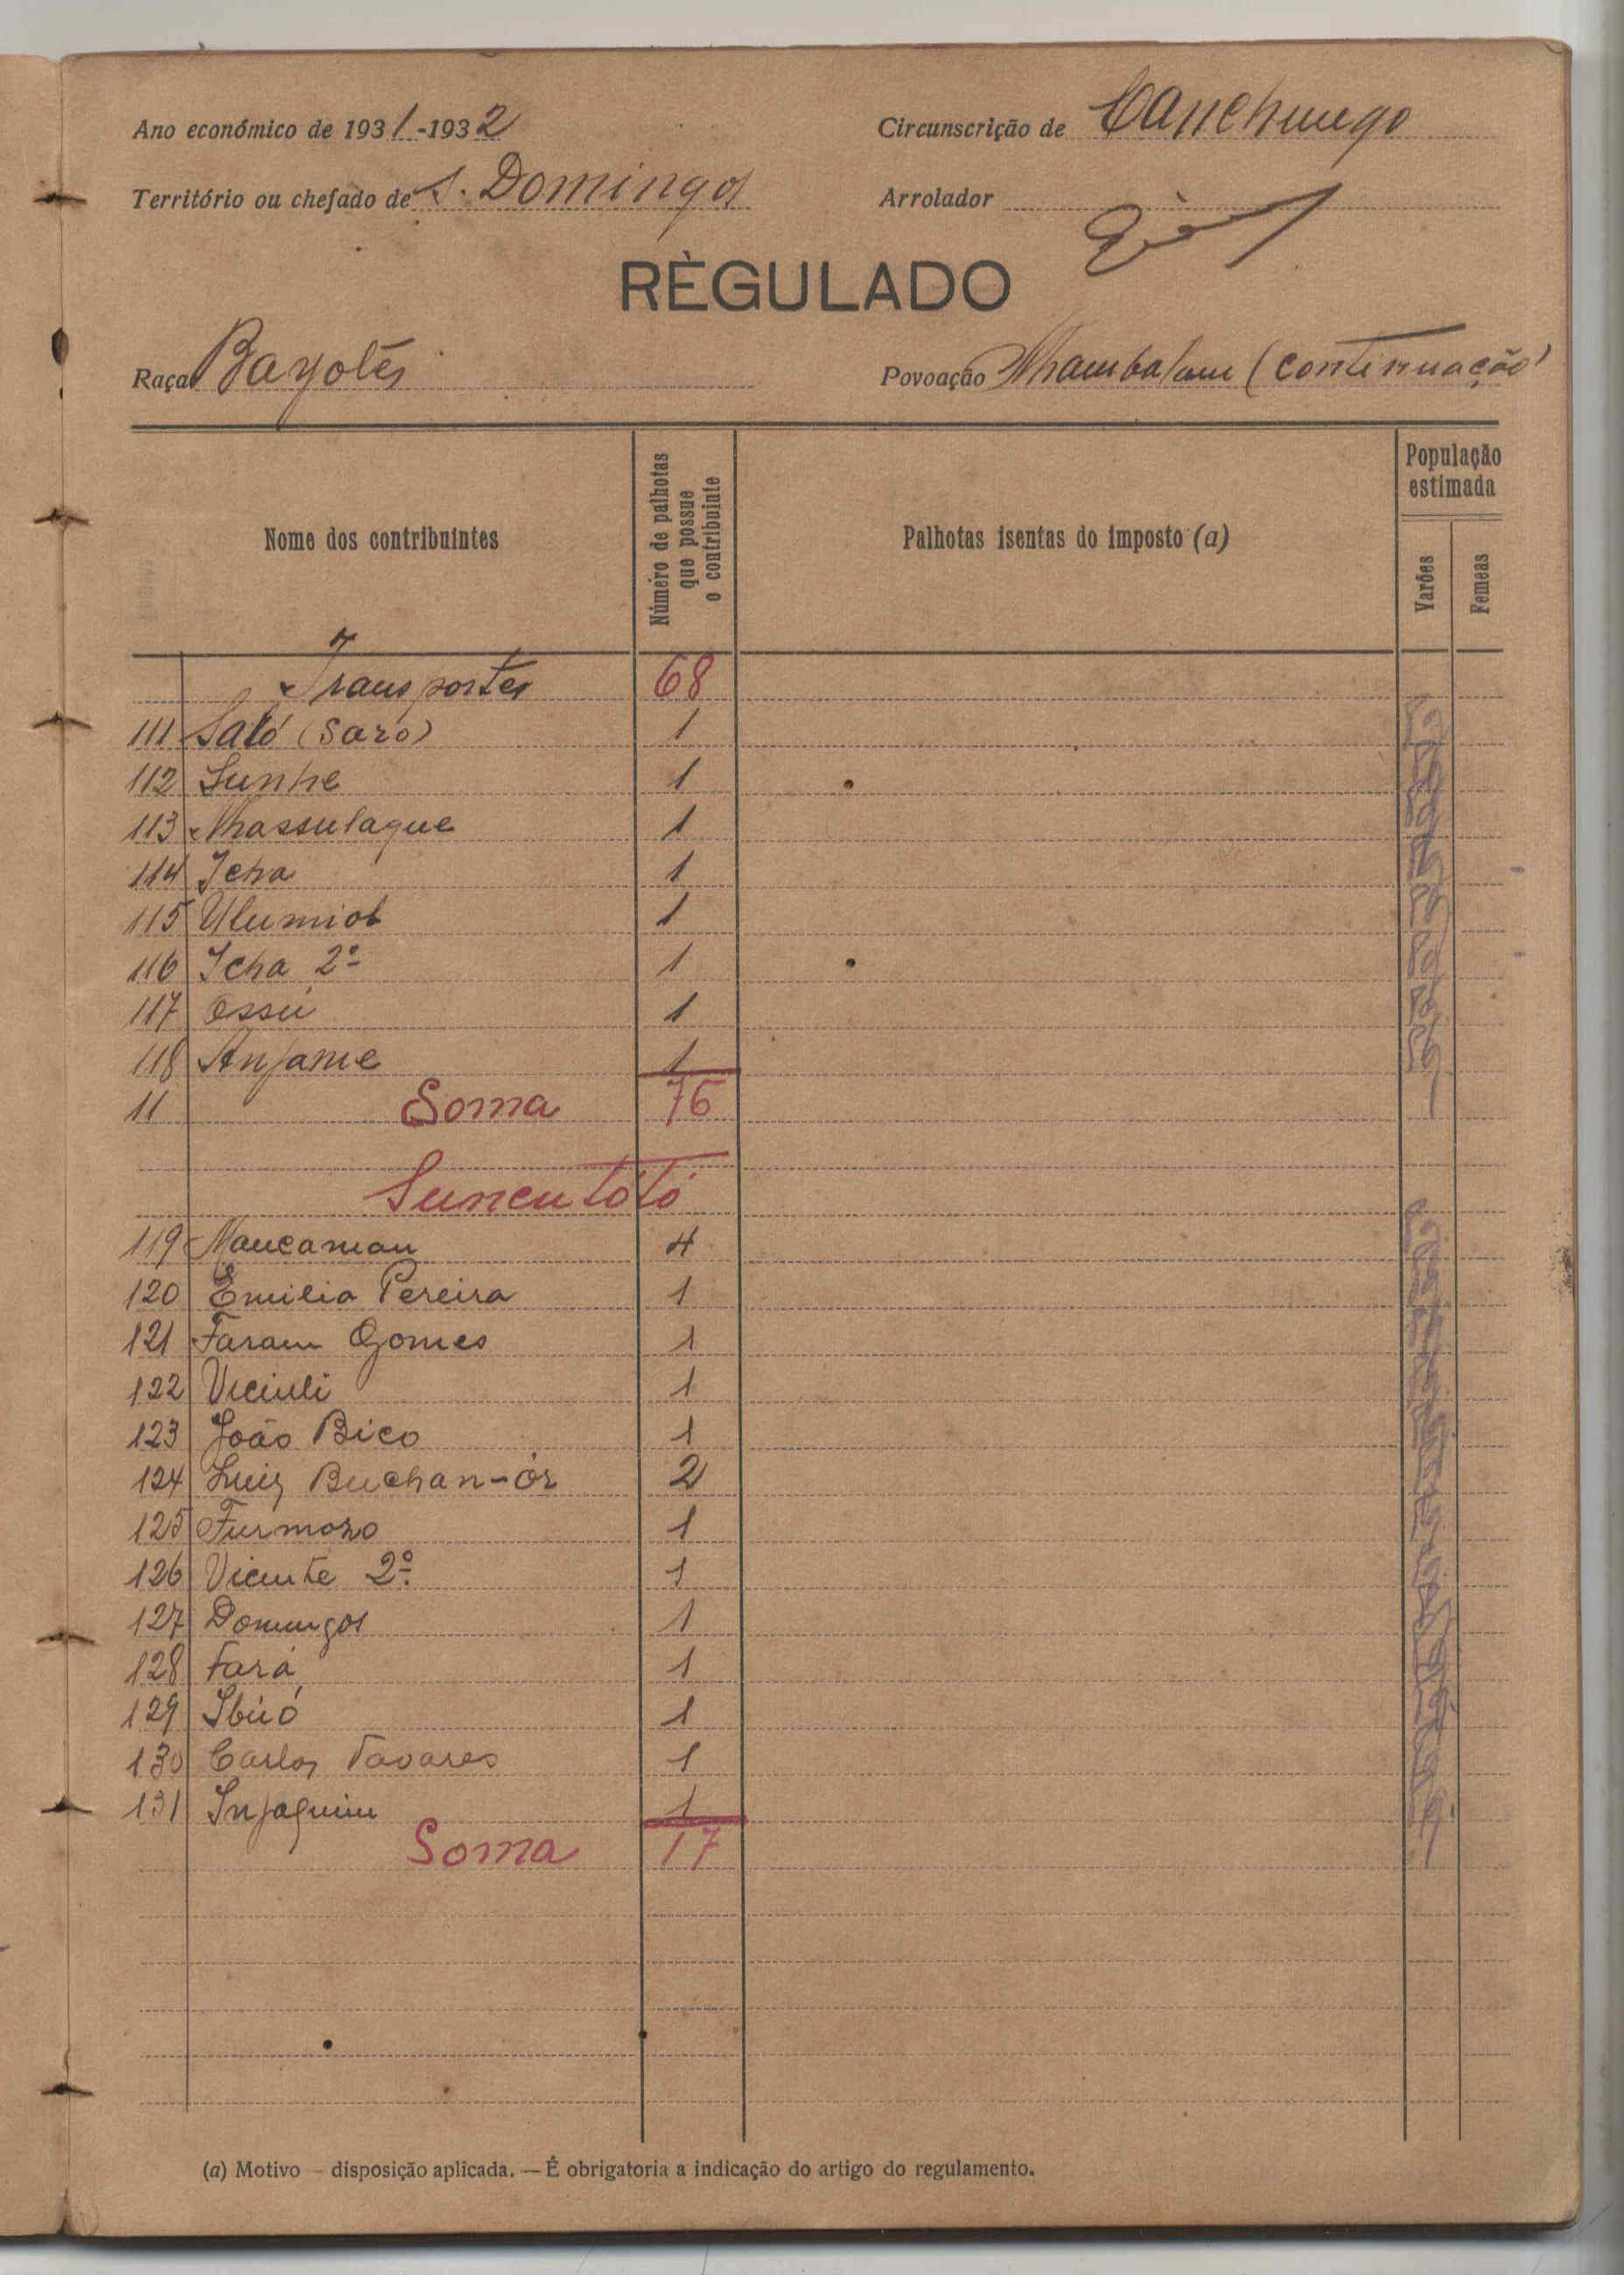 Ano económico de 1931-1932
Circunscrição de Canchungo
Território ou chefado de S. Domingos
Arrolador
RÈGULADO
Raça Bayotes
Povoação Nhambalam (continuação)
Nome dos contribuintes
Número de palhotas que possue o contribuinte
Palhotas isentas do imposto (a)
População estimada
Varões
Femeas
Transportes 68
111 Saló (Saró) 1
112 Sunhe 1
113 Nhassulague 1
114 Icha 1
115 Ulumiol 1
116 Icha 2º 1
117 Ossu 1
118 Anjame 1
11 Soma 76
Suncutótó
119 Naucaman 4
120 Emilia Pereira 1
121 Faram Gomes 1
122 1
123 João Bico 1
124 Luiz Buchan-ór 2
125 Furmozo 1
126 Vicente 2º 1
127 Domingos 1
128 Fará 1
129 Ibúó 1
130 Carlos Tavares 1
131 Injaquim 1
Soma 17
(a) Motivo — disposição aplicada. — É obrigatoria a indicação do artigo do regulamento.